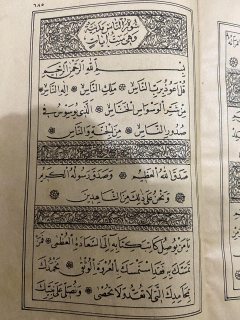 ٦٨٥
سورة الناس مدنية
وهي ست ايات
بِسْمِ اللَّهِ الرَّحْمَنِ الرَّحِيمِ
قُلْ أَعُوذُ بِرَبِّ النَّاسِ مَلِكِ النَّاسِ إِلَهِ النَّاسِ
مِنْ شَرِّ الْوَسْوَاسِ الْخَنَّاسِ الَّذِي يُوَسْوِسُ فِي
صُدُورِ النَّاسِ مِنَ الْجِنَّةِ وَالنَّاسِ
صَدَقَ اللَّهُ الْعَظِيمُ وَصَدَقَ رَسُولُهُ الْكَرِيمُ
وَنَحْنُ عَلَى ذَلِكَ مِنَ الشَّاهِدِينَ
يَا مَنْ يُوصِلُ كِتَابَهُ إِلَى السَّعَادَةِ الْعُظْمَى
تَمَسَّكَ بِهِ فَقَدِ اسْتَمْسَكَ بِالْعُرْوَةِ الْوُثْقَى نَحْمَدُكَ
بِمَحَامِدِكَ الَّتِي لَا تُعَدُّ وَلَا تُحْصَى وَنُصَلِّي عَلَى نَبِيِّكَ